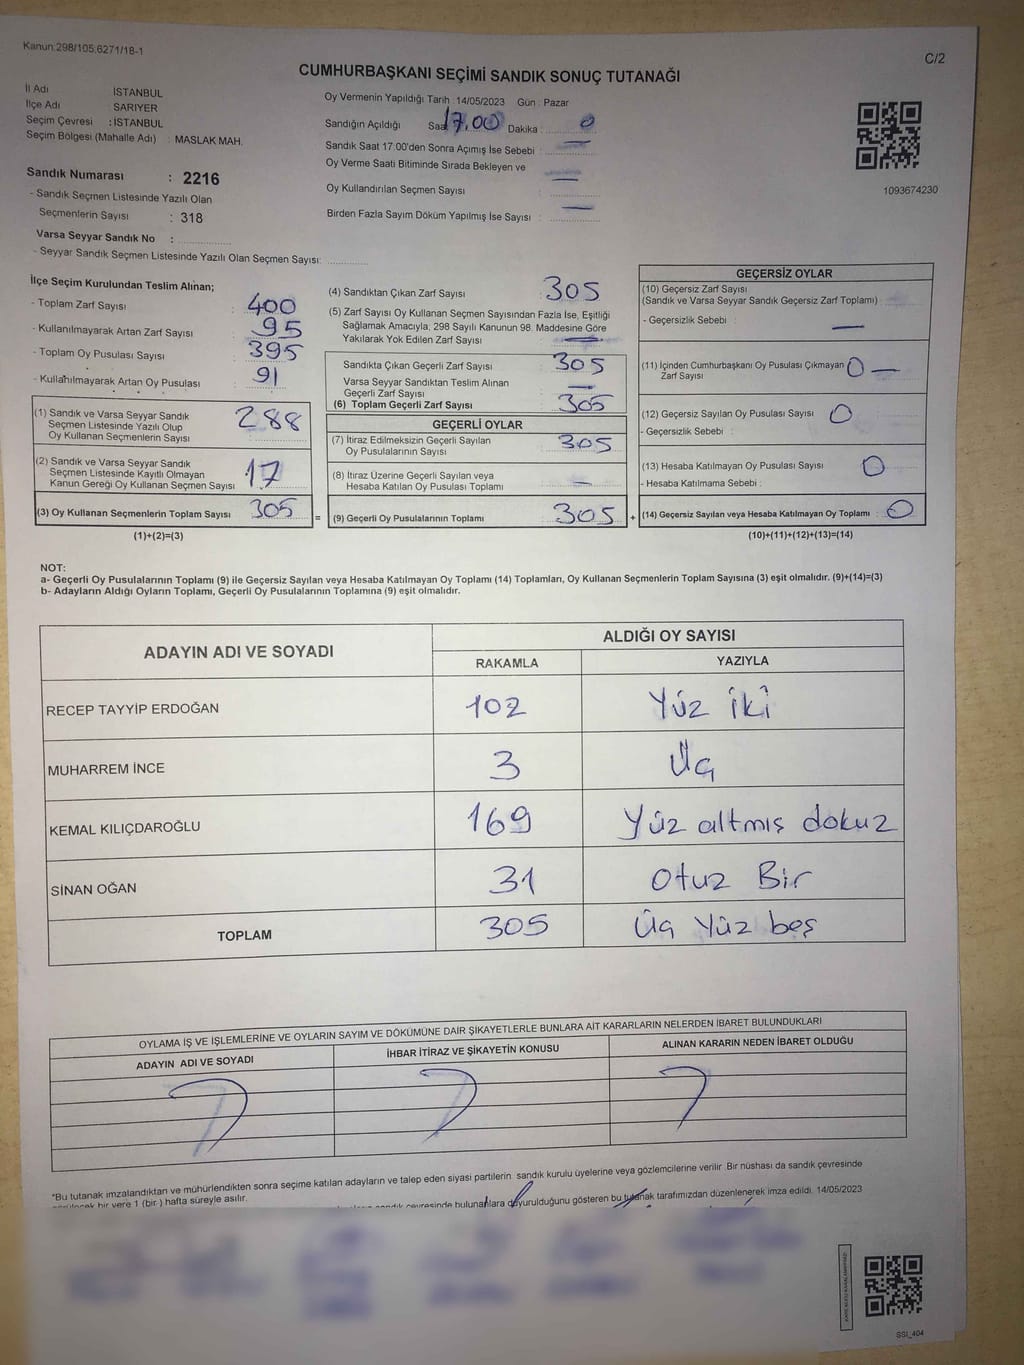 Kanun:298/105;6271/18-1
C/2
CUMHURBAŞKANI SEÇİMİ SANDIK SONUÇ TUTANAĞI
İl Adı İSTANBUL
İlçe Adı SARIYER
Seçim Çevresi : İSTANBUL
Seçim Bölgesi (Mahalle Adı) : MASLAK MAH.
Sandık Numarası : 2216
- Sandık Seçmen Listesinde Yazılı Olan
Seçmenlerin Sayısı : 318
Varsa Seyyar Sandık No :
- Seyyar Sandık Seçmen Listesinde Yazılı Olan Seçmen Sayısı:
Oy Vermenin Yapıldığı Tarih :14/05/2023 Gün : Pazar
Sandığın Açıldığı Saat 17.00 Dakika : 0
Sandık Saat 17:00'den Sonra Açımış İse Sebebi : —
Oy Verme Saati Bitiminde Sırada Bekleyen ve
Oy Kullandırılan Seçmen Sayısı —
Birden Fazla Sayım Döküm Yapılmış İse Sayısı : —
1093674230
İlçe Seçim Kurulundan Teslim Alınan;
- Toplam Zarf Sayısı : 400
- Kullanılmayarak Artan Zarf Sayısı : 95
- Toplam Oy Pusulası Sayısı : 395
- Kullanılmayarak Artan Oy Pusulası : 91
(1) Sandık ve Varsa Seyyar Sandık
Seçmen Listesinde Yazılı Olup
Oy Kullanan Seçmenlerin Sayısı : 288
(2) Sandık ve Varsa Seyyar Sandık
Seçmen Listesinde Kayıtlı Olmayan
Kanun Gereği Oy Kullanan Seçmen Sayısı : 17
(3) Oy Kullanan Seçmenlerin Toplam Sayısı : 305
(1)+(2)=(3)
(4) Sandıktan Çıkan Zarf Sayısı : 305
(5) Zarf Sayısı Oy Kullanan Seçmen Sayısından Fazla İse, Eşitliği
Sağlamak Amacıyla; 298 Sayılı Kanunun 98. Maddesine Göre
Yakılarak Yok Edilen Zarf Sayısı : —
Sandıkta Çıkan Geçerli Zarf Sayısı : 305
Varsa Seyyar Sandıktan Teslim Alınan
Geçerli Zarf Sayısı : —
(6) Toplam Geçerli Zarf Sayısı : 305
GEÇERLİ OYLAR
(7) İtiraz Edilmeksizin Geçerli Sayılan
Oy Pusulalarının Sayısı : 305
(8) İtiraz Üzerine Geçerli Sayılan veya
Hesaba Katılan Oy Pusulası Toplamı : —
= (9) Geçerli Oy Pusulalarının Toplamı : 305 +
GEÇERSİZ OYLAR
(10) Geçersiz Zarf Sayısı
(Sandık ve Varsa Seyyar Sandık Geçersiz Zarf Toplamı) :
- Geçersizlik Sebebi : —
(11) İçinden Cumhurbaşkanı Oy Pusulası Çıkmayan
Zarf Sayısı : 0 —
(12) Geçersiz Sayılan Oy Pusulası Sayısı : 0
- Geçersizlik Sebebi :
(13) Hesaba Katılmayan Oy Pusulası Sayısı : 0
- Hesaba Katılmama Sebebi :
(14) Geçersiz Sayılan veya Hesaba Katılmayan Oy Toplamı : 0
(10)+(11)+(12)+(13)=(14)
NOT:
a- Geçerli Oy Pusulalarının Toplamı (9) ile Geçersiz Sayılan veya Hesaba Katılmayan Oy Toplamı (14) Toplamları, Oy Kullanan Seçmenlerin Toplam Sayısına (3) eşit olmalıdır. (9)+(14)=(3)
b- Adayların Aldığı Oyların Toplamı, Geçerli Oy Pusulalarının Toplamına (9) eşit olmalıdır.
ADAYIN ADI VE SOYADI ALDIĞI OY SAYISI
RAKAMLA YAZIYLA
RECEP TAYYİP ERDOĞAN 102 Yüz iki
MUHARREM İNCE 3 Üç
KEMAL KILIÇDAROĞLU 169 Yüz altmış dokuz
SİNAN OĞAN 31 Otuz Bir
TOPLAM 305 Üç Yüz beş
OYLAMA İŞ VE İŞLEMLERİNE VE OYLARIN SAYIM VE DÖKÜMÜNE DAİR ŞİKAYETLERLE BUNLARA AİT KARARLARIN NELERDEN İBARET BULUNDUKLARI
ADAYIN ADI VE SOYADI İHBAR İTİRAZ VE ŞİKAYETİN KONUSU ALINAN KARARIN NEDEN İBARET OLDUĞU
*Bu tutanak imzalandıktan ve mühürlendikten sonra seçime katılan adayların ve talep eden siyasi partilerin sandık kurulu üyelerine veya gözlemcilerine verilir. Bir nüshası da sandık çevresinde
bir yere 1 (bir ) hafta süreyle asılır.
sandık çevresinde bulunanlara duyurulduğunu gösteren bu tutanak tarafımızdan düzenlenerek imza edildi. 14/05/2023
SSI_404